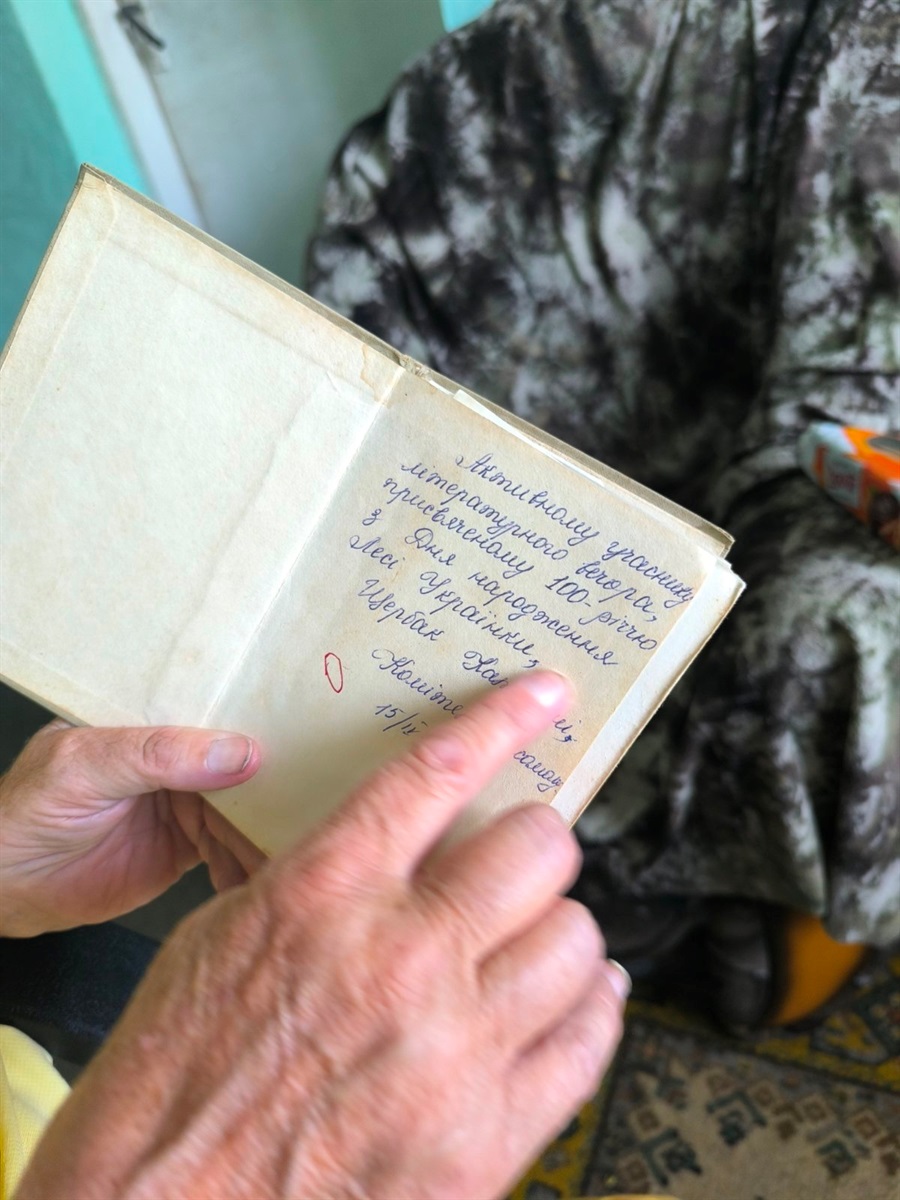 Активному учаснику
літературного вечора,
присвяченому 100-річчю
з Дня народження
Лесі Українки,
Щербак
15/IX